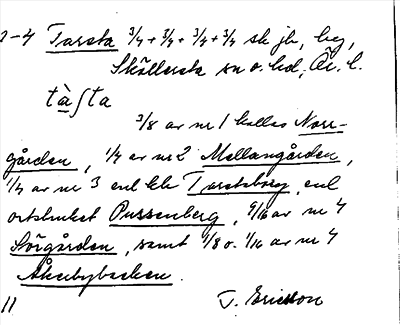 1-4 Tarsta 3/4 + 3/4 + 3/4 + 3/4 sk jb, beg,
Sköllersta sn o. hd, Ör. l.
tàʃta
3/8 av nr 1 kallas Norr-
gården, 1/4 av nr 2 Mellangården,
1/4 av nr 3 enl kbr Tarstaborg, enl
ortsbruket Pussenberg, 9/16 av nr 4
Sörgården, samt 1/8 o. 1/16 av nr 4
Åkerbybacken.
11 J. Ericsson